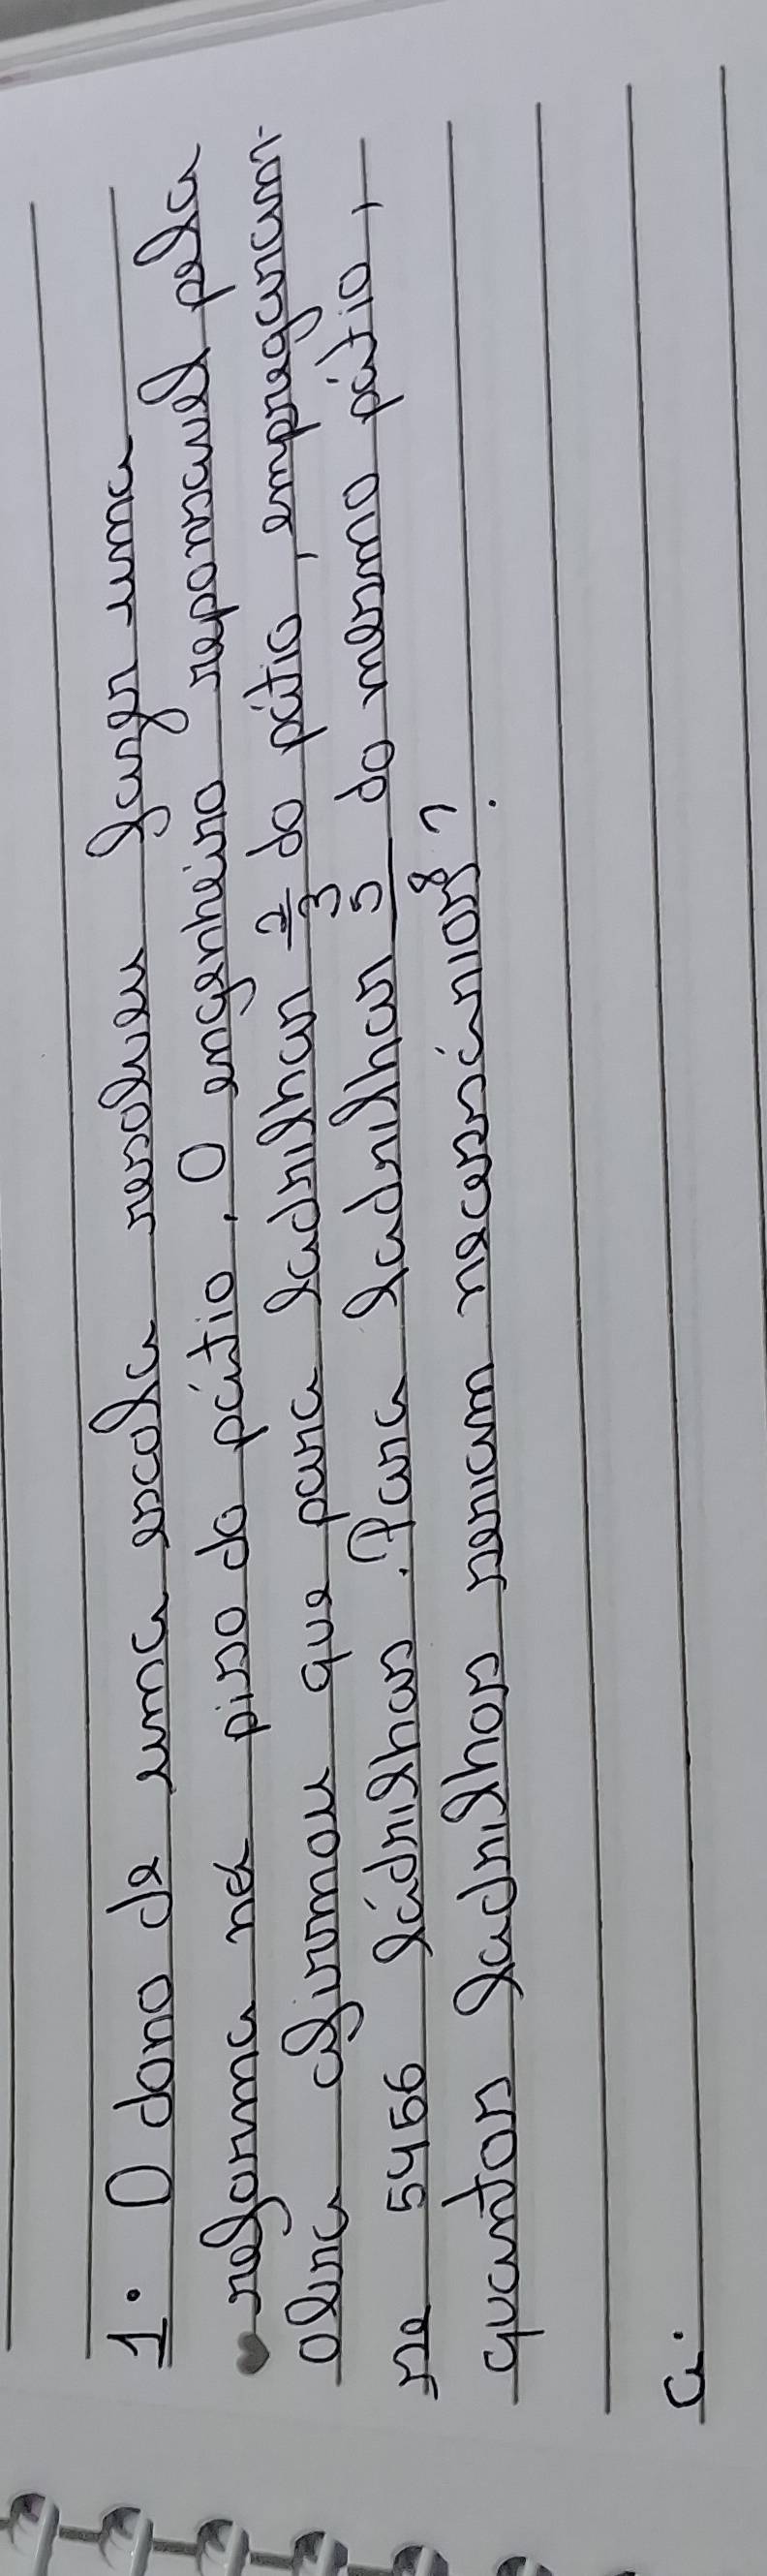 1. O dono de uma escola resolveu fazer uma
reforma no piso do pátio. O engenheiro reponsavel pela
obra afirmou que para ladrilhar 2/3 do pátio, empregaram-
se 5456 ládrilhas. Para ladrilhar 5/8 do mesmo pátio,
quantos ladrilhos seriam necessários?
a.